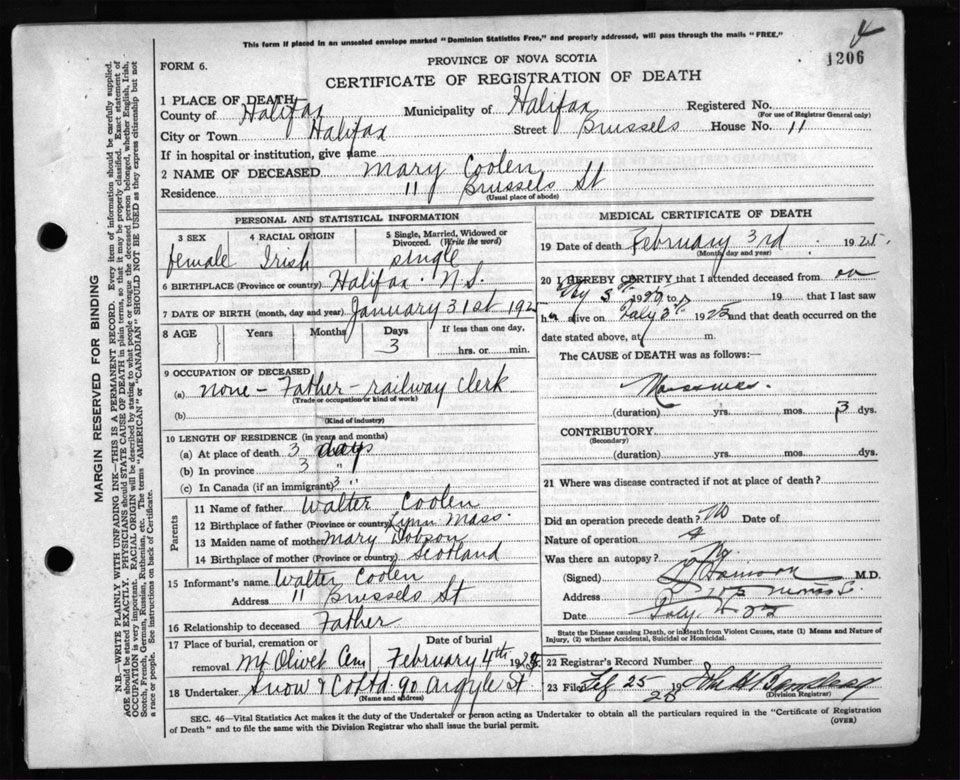 This form if placed in an unsealed envelope marked "Dominion Statistics Free," and properly addressed, will pass through the mails "FREE."
1206
FORM 6.
PROVINCE OF NOVA SCOTIA
CERTIFICATE OF REGISTRATION OF DEATH
MARGIN RESERVED FOR BINDING
N.B.—WRITE PLAINLY WITH UNFADING INK—THIS IS A PERMANENT RECORD. Every item of information should be carefully supplied.
AGE should be stated EXACTLY. PHYSICIANS should STATE CAUSE OF DEATH in plain terms, so that it may be properly classified. Exact statement of
OCCUPATION is very important. RACIAL ORIGIN will be described by stating to what people or tongue the deceased person belonged, whether English, Irish,
Scotch, French, German, Russian, Ruthenian, etc. The terms "AMERICAN" or "CANADIAN" SHOULD NOT BE USED as they express citizenship but not
a race or people. See instructions on back of Certificate.
1 PLACE OF DEATH
County of Halifax Municipality of Halifax Registered No.
(For use of Registrar General only)
City or Town Halifax Street Brussels House No. 11
If in hospital or institution, give name
2 NAME OF DECEASED Mary Coolen
Residence 11 Brussels St
(Usual place of abode)
PERSONAL AND STATISTICAL INFORMATION
3 SEX 4 RACIAL ORIGIN 5 Single, Married, Widowed or Divorced. (Write the word)
female Irish single
6 BIRTHPLACE (Province or country) Halifax N.S.
7 DATE OF BIRTH (month, day and year) January 31st 192
8 AGE Years Months Days If less than one day,
3 hrs. or min.
9 OCCUPATION OF DECEASED
(a) none - Father - railway clerk
(Trade or occupation or kind of work)
(b)
(Kind of industry)
10 LENGTH OF RESIDENCE (in years and months)
(a) At place of death 3 days
(b) In province 3 "
(c) In Canada (if an immigrant) 3 "
Parents
11 Name of father Walter Coolen
12 Birthplace of father (Province or country) Lynn Mass.
13 Maiden name of mother Mary Dobson
14 Birthplace of mother (Province or country) Scotland
15 Informant's name Walter Coolen
Address 11 Brussels St
16 Relationship to deceased Father
17 Place of burial, cremation or removal Date of burial
Mt Olivet Cem February 4th 192
18 Undertaker Snow & Co Ltd 90 Argyle St
(Name and address)
MEDICAL CERTIFICATE OF DEATH
19 Date of death February 3rd 1925
(Month, day and year)
20 I HEREBY CERTIFY that I attended deceased from on
19 that I last saw
h alive on 1925 and that death occurred on the
date stated above, at m.
The CAUSE of DEATH was as follows:
(duration) yrs. mos. 3 dys.
CONTRIBUTORY
(Secondary)
(duration) yrs. mos. dys.
21 Where was disease contracted if not at place of death?
Did an operation precede death? No Date of
Nature of operation
Was there an autopsy?
(Signed) M.D.
Address
Date
State the Disease causing Death, or in death from Violent Causes, state (1) Means and Nature of
Injury, (2) whether Accidental, Suicidal or Homicidal.
22 Registrar's Record Number
23 Filed Feb 25 19 25
(Division Registrar)
SEC. 46—Vital Statistics Act makes it the duty of the Undertaker or person acting as Undertaker to obtain all the particulars required in the "Certificate of Registration
of Death" and to file the same with the Division Registrar who shall issue the burial permit.
(OVER)